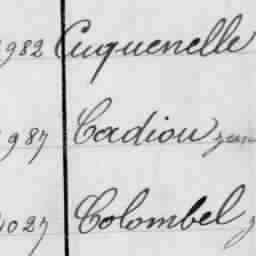 982 Cuquenelle
987 Cadiou
1027 Colombel